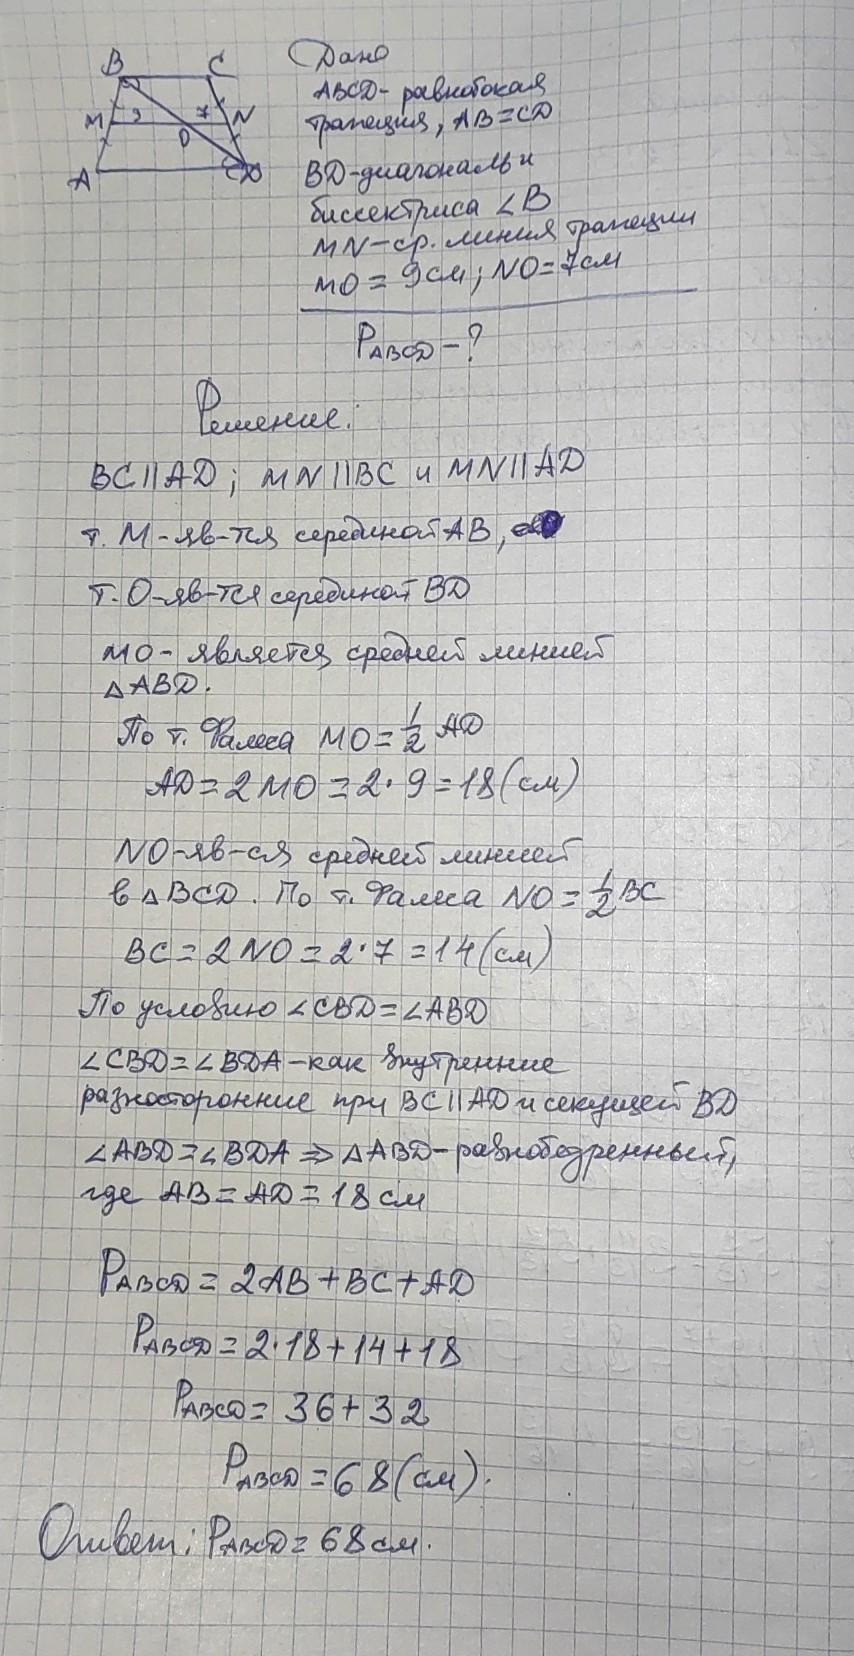 B C
Дано
ABCD - равнобокая
M 9 7 N
трапеция, AB=CD
O
A D
BD - диагональ и
биссектриса ∠B
MN - ср. линия трапеции
MO = 9см; NO = 7см
PABCD - ?
Решение:
BC || AD ; MN || BC и MN || AD
т. M - яв-тся серединой AB,
т. O - яв-тся серединой BD
MO - является средней линией
△ABD.
По т. Фалеса MO = 1/2 AD
AD = 2MO = 2 · 9 = 18 (см)
NO - яв-ся средней линией
в △BCD. По т. Фалеса NO = 1/2 BC
BC = 2NO = 2 · 7 = 14 (см)
По условию ∠CBD = ∠ABD
∠CBD = ∠BDA - как внутренние
разносторонние при BC || AD и секущей BD
∠ABD = ∠BDA ⇒ △ABD - равнобедренный,
где AB = AD = 18 см
PABCD = 2AB + BC + AD
PABCD = 2 · 18 + 14 + 18
PABCD = 36 + 32
PABCD = 68 (см).
Ответ: PABCD = 68 см.